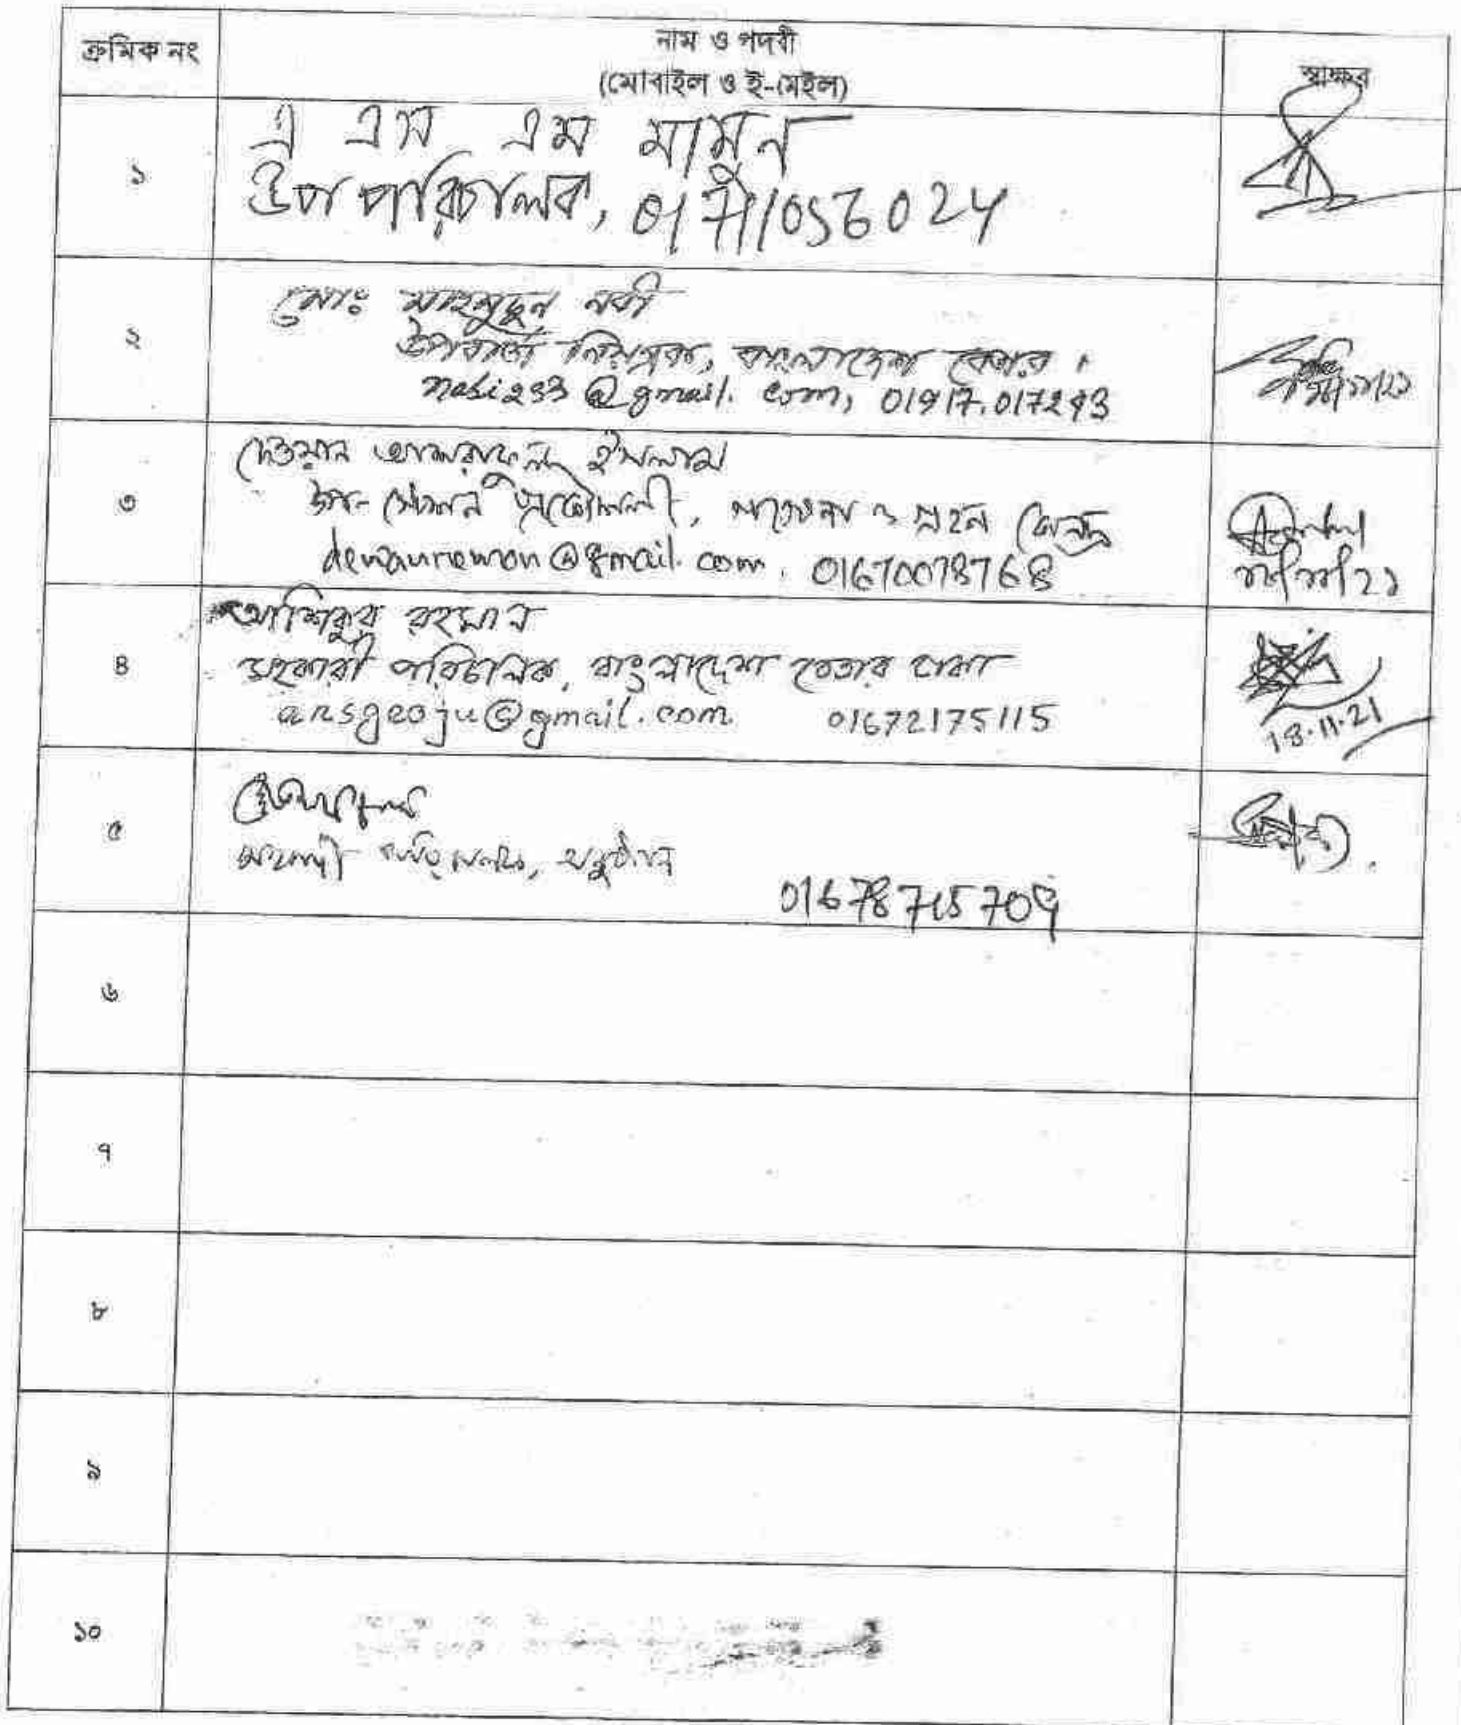 ক্রমিক নং
নাম ও পদবী
(মোবাইল ও ই-মেইল)
স্বাক্ষর
১
এ এস এম মামুন
উপ পরিচালক, 01711056024
২
মোঃ মাহমুদুন নবী
উপবার্তা নিয়ন্ত্রক, বাংলাদেশ বেতার।
nabi293@gmail.com, 01917.017293
৩
দেওয়ান আশরাফুল ইসলাম
উপ-স্টেশন প্রকৌশলী, গবেষণা ও গ্রহণ কেন্দ্র
01670078768
৪
আশিকুর রহমান
সহকারী পরিচালক, বাংলাদেশ বেতার ঢাকা
arsgeoju@gmail.com 01672175115
18.11.21
৫
সহকারী পরিচালক, অনুষ্ঠান
01678715709
৬
৭
৮
৯
১০